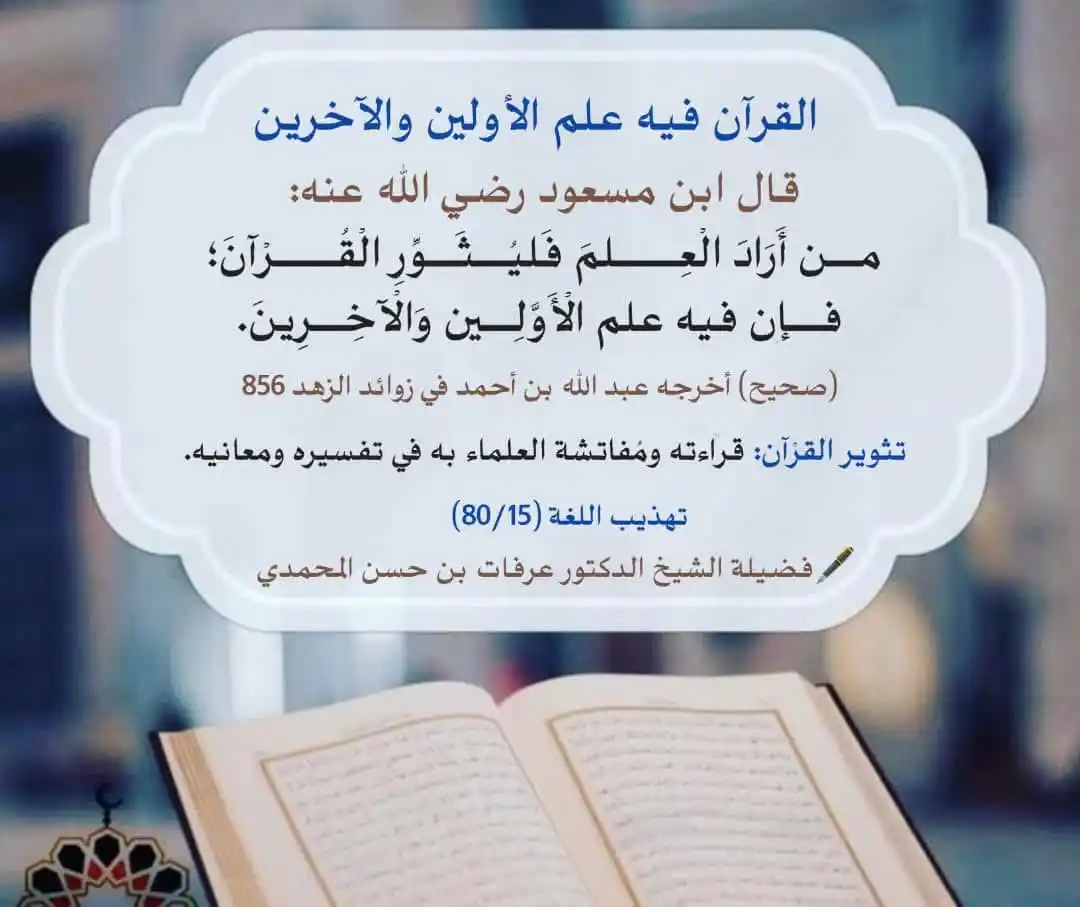 القرآن فيه علم الأولين والآخرين
قال ابن مسعود رضي الله عنه:
مــن أَرَادَ الْعِــــلمَ فَليُــثَــوِّرِ الْقُــــرْآنَ؛
فــإن فيه علم الْأَوَّلِــين وَالْآخِــرِينَ.
(صحيح) أخرجه عبد الله بن أحمد في زوائد الزهد 856
تثوير القرْآن: قراءته ومُفاتشة العلماء به في تفسيره ومعانيه.
تهذيب اللغة (80/15)
فضيلة الشيخ الدكتور عرفات بن حسن المحمدي